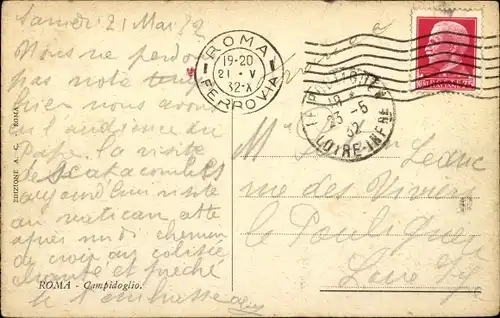 Samedi 21 Mai 32
Nous ne perdons
pas notre temps
hier nous avons
eu l'audience du
Pape. La visite
des catacombes
aujourd'hui visite
au vatican cette
après midi chemin
de croix au colisée
chanté et prêché
Je t'embrasse
EDIZIONE A. C. ROMA
ROMA - Campidoglio.
ROMA
19-20
21 · V
32-X
FERROVIA
23-5
32
LOIRE-INFRE
M
Leduc
rue des
le Pouliguen
Loire Inf